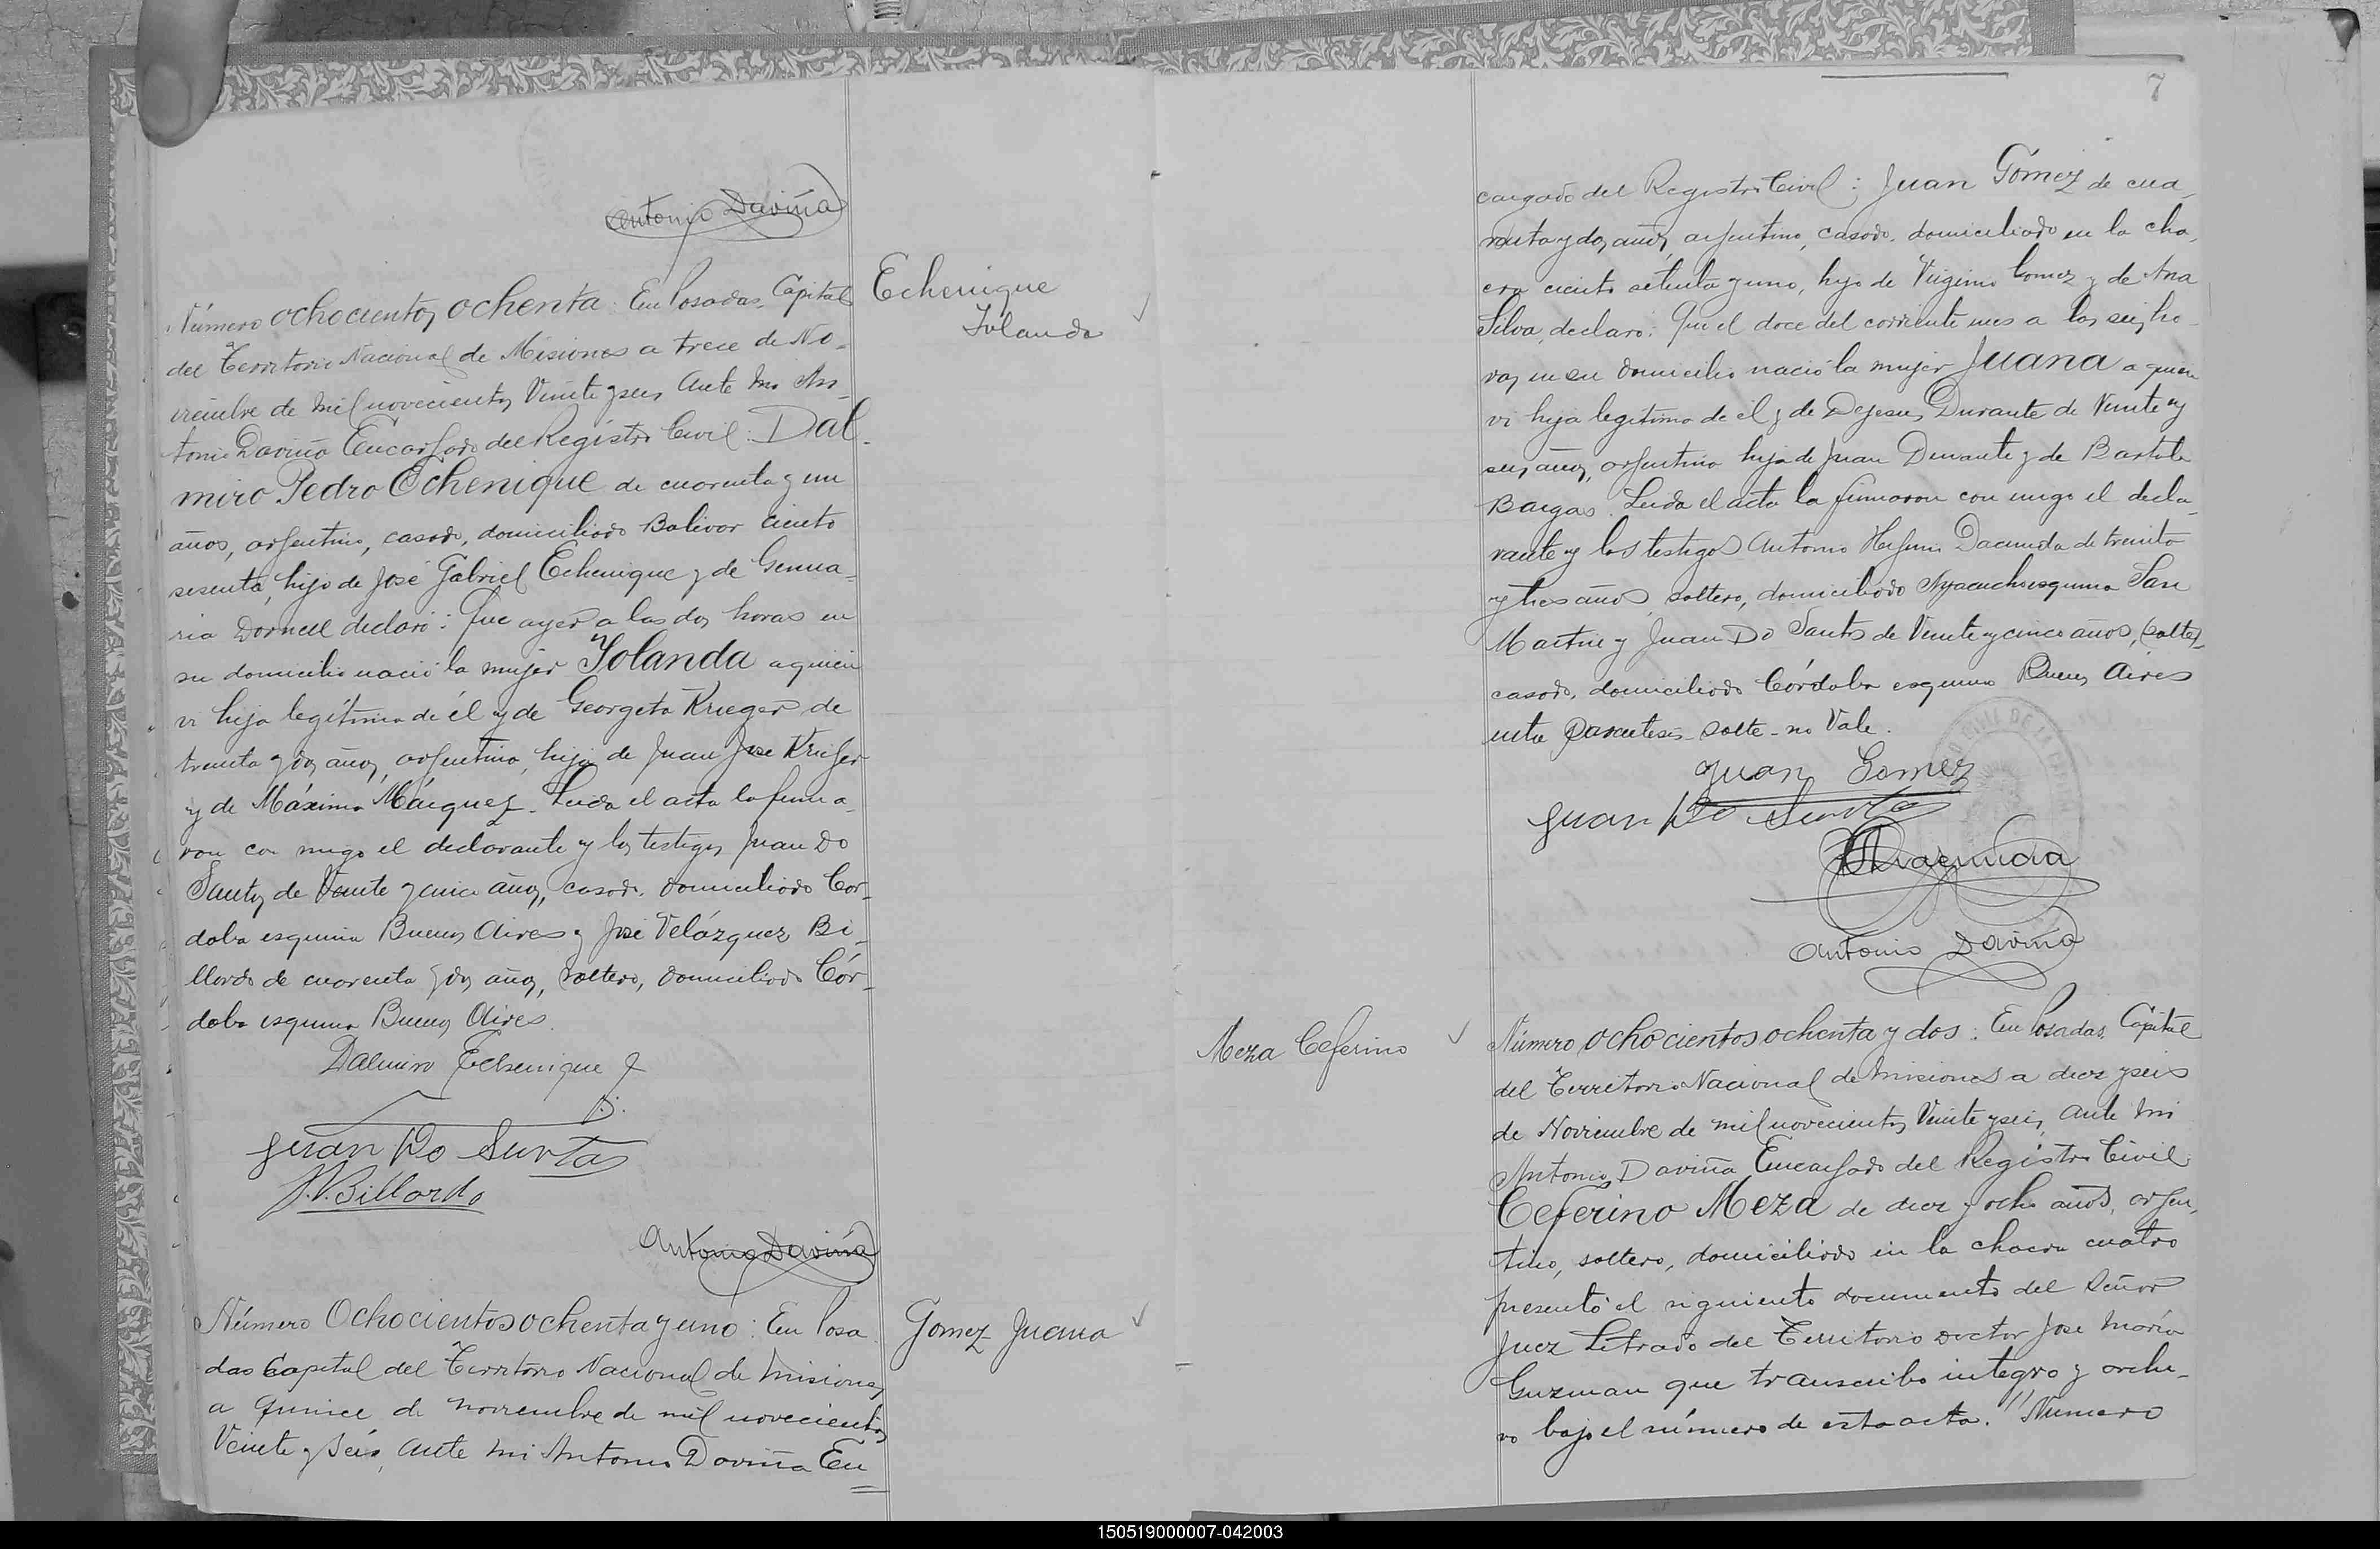 Antonio Daviña
Número ochocientos ochenta: En Posadas, Capital
del Territorio Nacional de Misiones a trece de No-
viembre de mil novecientos veinte y seis, ante mi An-
tonio Daviña Encargado del Registro Civil: Dal-
miro Pedro Echenique de cuarenta y un
años, argentino, casado, domiciliado Bolivar ciento
sesenta, hijo de José Gabriel Echenique y de Genua-
ria Dornell declaró: Que ayer a las dos horas en
su domicilio nació la mujer Yolanda a quien
vi hija legítima de él y de Georgeta Krieger de
treinta y dos años, argentina, hija de Juan José Krieger
y de Máxima Márquez. Leida el acta la firma-
ron con migo el declarante y los testigos Juan Do
Santos de veinte y cinco años, casado, domiciliado Cór-
doba esquina Buenos Aires y José Velázquez Bi-
llordo de cuarenta y dos años, soltero, domiciliado Cór-
doba esquina Buenos Aires.
Dalmiro Echenique J
Juan Do Santos
J.V.Billordo
Antonio Daviña
Número Ochocientos ochenta y uno: En Posa-
das Capital del Territorio Nacional de Misiones
a quince de noviembre de mil novecientos
veinte y seis, ante mi Antonio Daviña En
Echenique
Yolanda
Gomez Juana
7
cargado del Registro Civil: Juan Gómez de cua-
renta y dos años, argentino, casado, domiciliado en la cha-
cra ciento setenta y uno, hijo de Virginio Gomez y de Ana
Silva, declaró: Que el doce del corriente mes a las seis ho-
ras en su domicilio nació la mujer Juana a quien
vi hija legítima de él y de Dejesus Durante de veinte y
seis años, argentina hija de Juan Durante y de Bartola
Bargas. Leida el acta la firmaron con migo el decla-
rante y los testigos Antonio Dacunda de treinta
y tres años, soltero, domiciliado Ayacucho esquina San
Martin y Juan Do Santos de veinte y cinco años, (solte)-
casado, domiciliado Córdoba esquina Buenos Aires
entre parentesis-solte-no vale.
Juan Gomez
Juan Do Santos
Antonio Daviña
Meza Ceferino
Número ochocientos ochenta y dos: En Posadas, Capital
del Territorio Nacional de Misiones a diez y seis
de Noviembre de mil novecientos veinte y seis, ante mi
Antonio Daviña Encargado del Registro Civil:
Ceferino Meza de diez y ocho años, argen-
tino, soltero, domiciliado en la chacra cuatro
presentó el siguiente documento del Señor
Juez Letrado del Territorio doctor José María
Guzman que transcribo integro y archi-
vo bajo el número de esta acta. "Numero
150519000007-042003